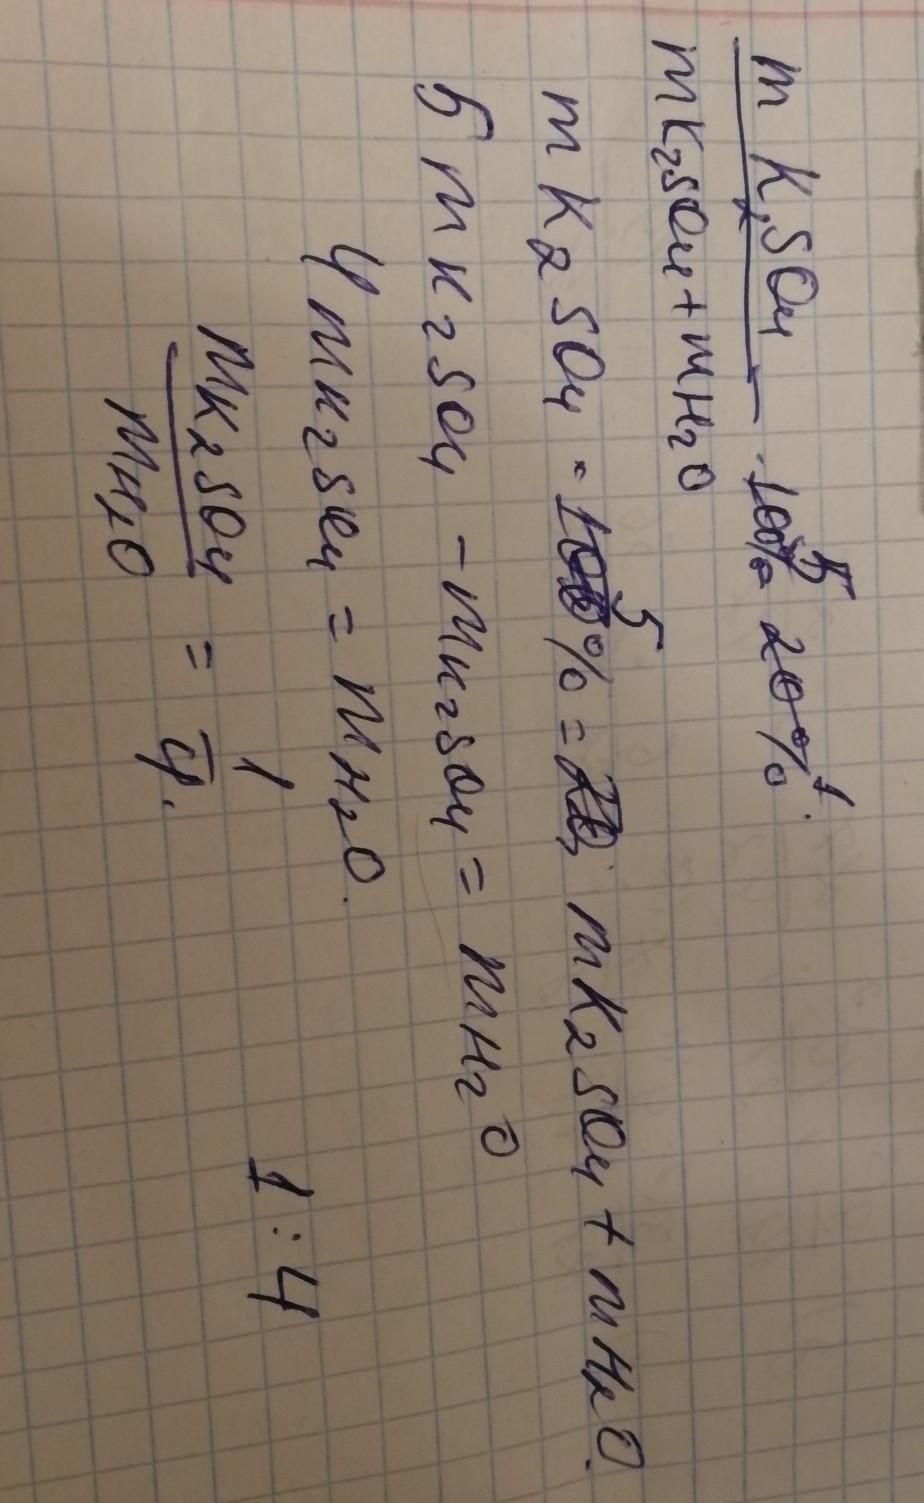 m K₂SO₄ · 100% 5 20% 1.
mK₂SO₄ + mH₂O
m K₂SO₄ · 100% 5 = mK₂SO₄ + mH₂O.
5 m K₂SO₄ - mK₂SO₄ = mH₂O
4 mK₂SO₄ = mH₂O.
mK₂SO₄ = 1
mH₂O 4. 1 : 4